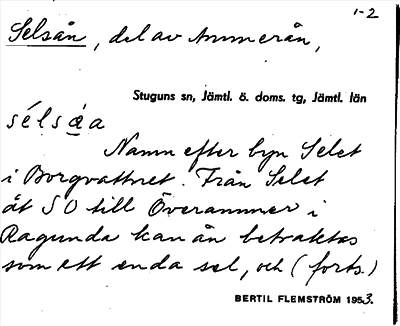 1-2
Selsån, del av Ammerån,
Stuguns sn, Jämtl. ö. doms. tg, Jämtl. län
sélsa̲a
Namn efter byn Selet
i Borgvattnet. Från Selet
åt SO till Överammer i
Ragunda kan ån betraktas
som ett enda sel, och (forts.)
BERTIL FLEMSTRÖM 1953.